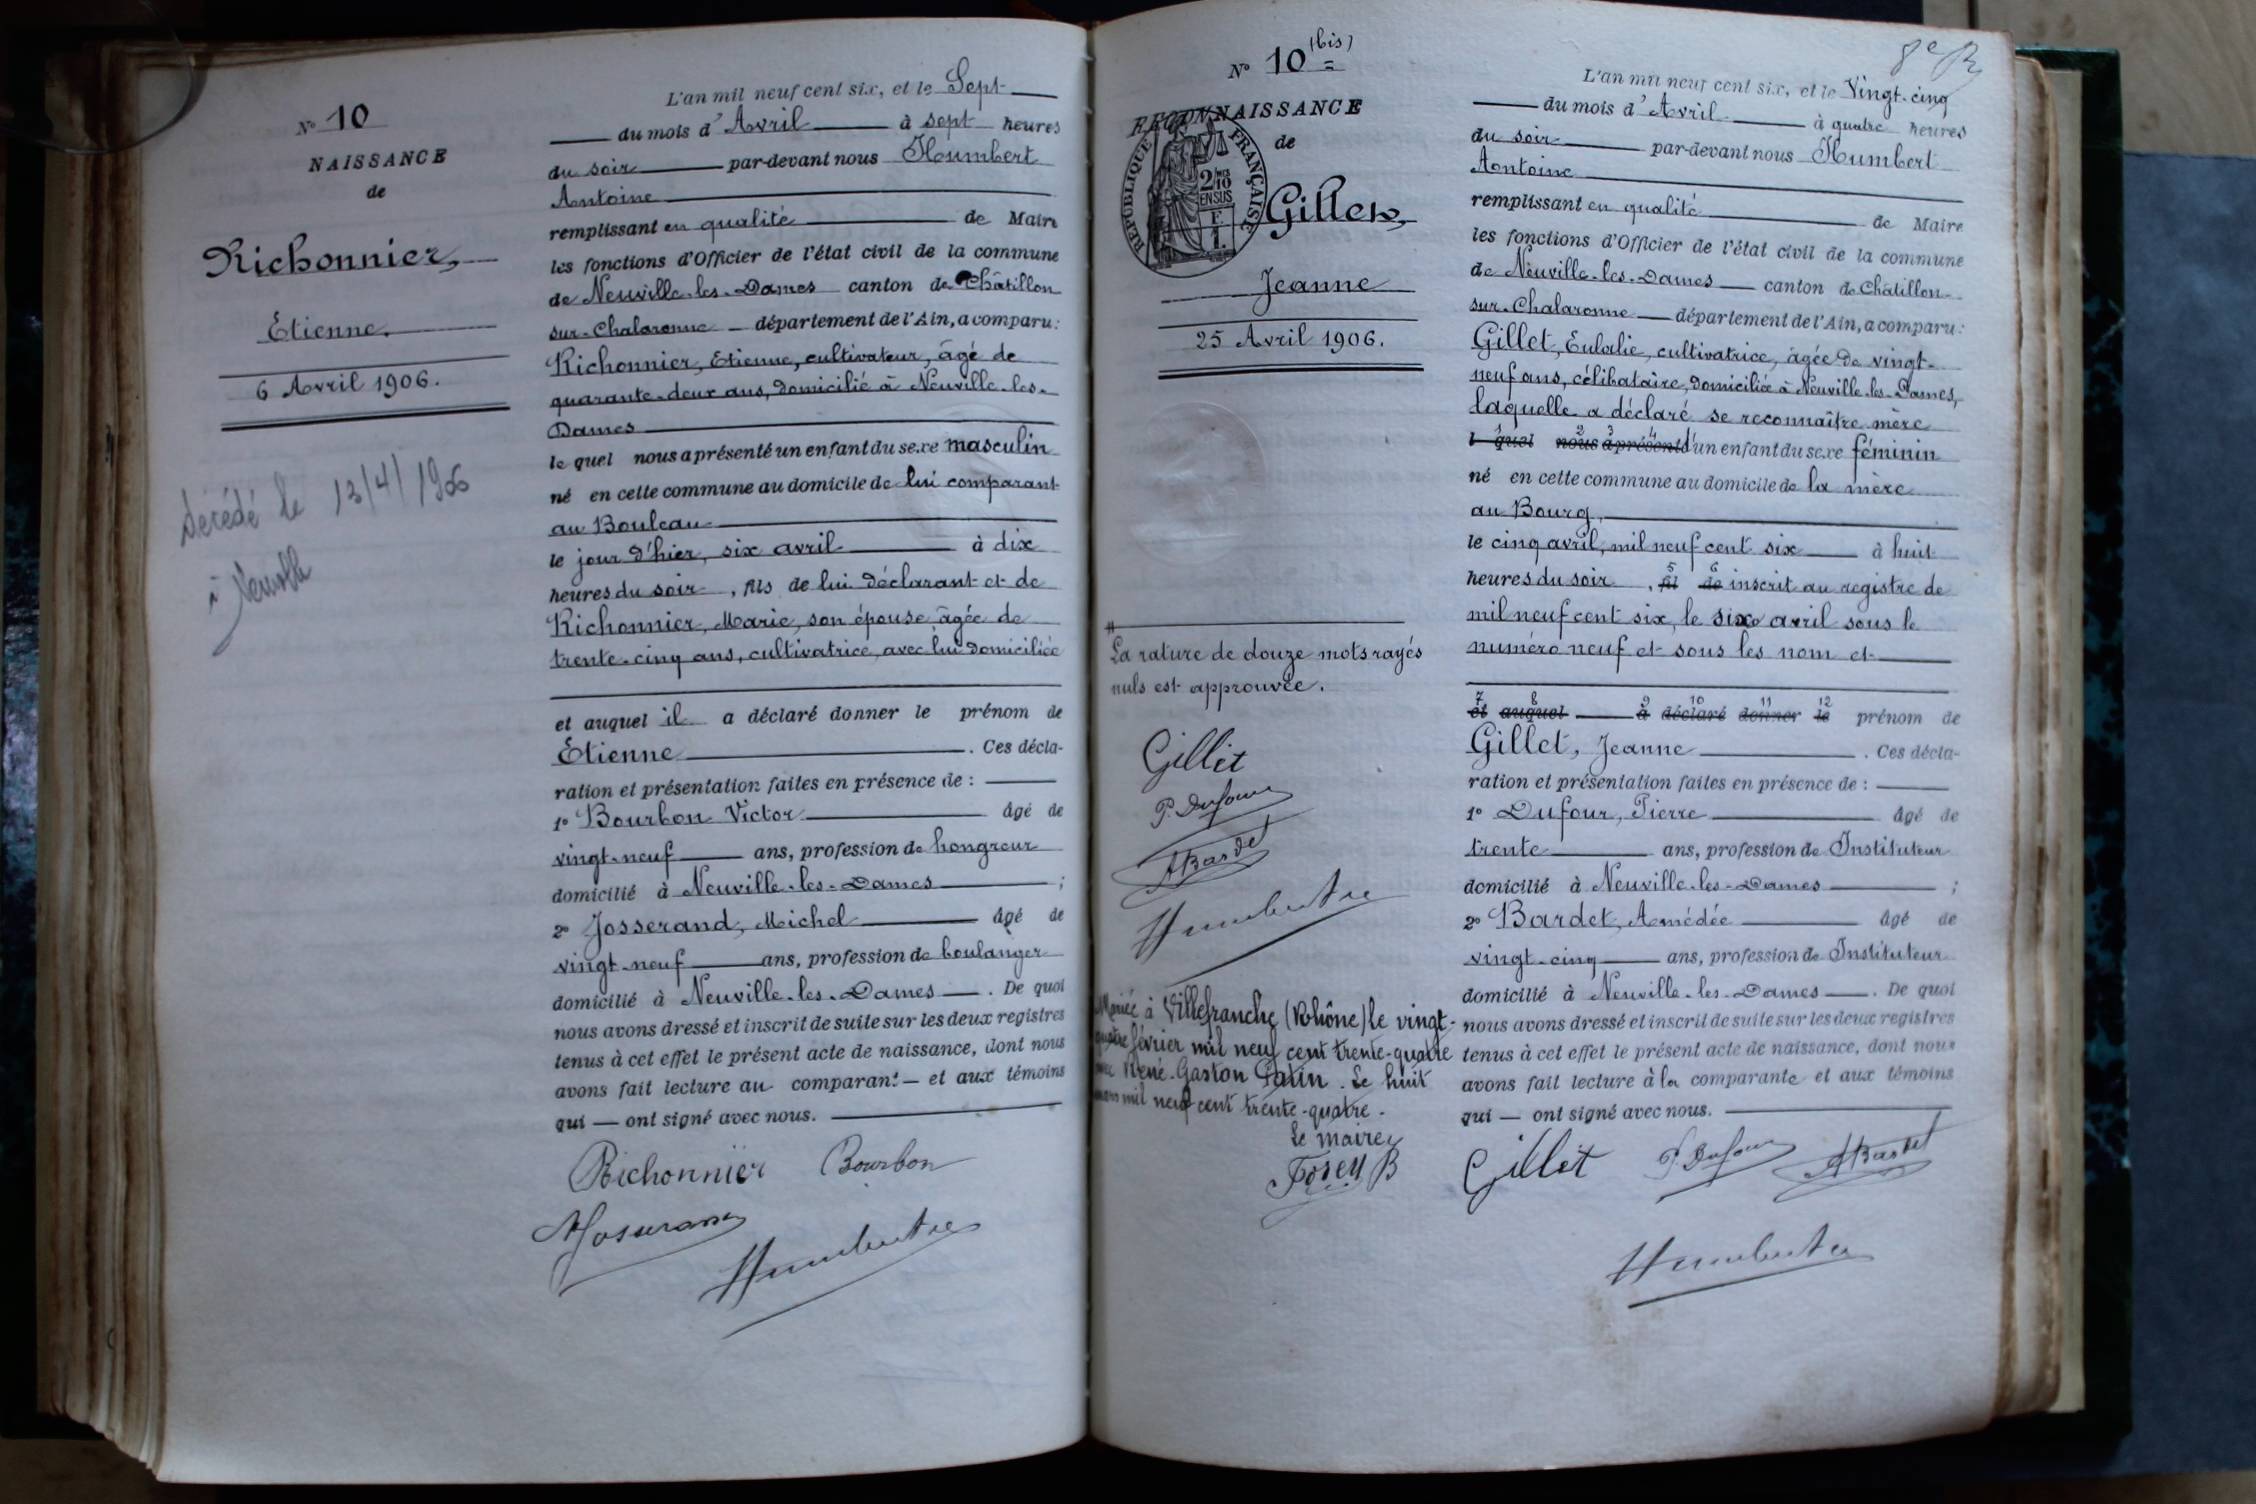 N° 10
NAISSANCE
de
Richonnier,
Étienne.
6 Avril 1906.
décédé le 13/4/1906
à Neuville
L'an mil neuf cent six, et le Sept
du mois d'Avril à sept heures
du soir par-devant nous Humbert
Antoine
remplissant en qualité de Maire
les fonctions d'Officier de l'état civil de la commune
de Neuville-les-Dames canton de Châtillon
sur-Chalaronne département de l'Ain, a comparu:
Richonnier, Etienne, cultivateur, âgé de
quarante-deux ans, domicilié à Neuville-les-
Dames
le quel nous a présenté un enfant du sexe masculin
né en cette commune au domicile de lui comparant
au Bouleau
le jour d'hier, six avril à dix
heures du soir, fils de lui déclarant et de
Richonnier, Marie, son épouse, âgée de
trente-cinq ans, cultivatrice, avec lui domiciliée
et auquel il a déclaré donner le prénom de
Étienne. Ces décla-
ration et présentation faites en présence de :
1° Bourbon Victor âgé de
vingt-neuf ans, profession de hongreur
domicilié à Neuville-les-Dames ;
2° Josserand, Michel âgé de
vingt-neuf ans, profession de boulanger
domicilié à Neuville-les-Dames. De quoi
nous avons dressé et inscrit de suite sur les deux registres
tenus à cet effet le présent acte de naissance, dont nous
avons fait lecture au comparant — et aux témoins
qui — ont signé avec nous.
Richonnier Bourbon
N° 10 (bis)
RECONNAISSANCE
de
RÉPUBLIQUE FRANÇAISE
2/10
EN SUS
F.
1.
Gillet,
Jeanne
25 Avril 1906.
La rature de douze mots rayés
nuls est approuvée.
Gillet
P. Dufour
ABardet
Mariée à Villefranche (Rhône) le vingt-
quatre février mil neuf cent trente-quatre
avec René-Gaston Patin. Le huit
mars mil neuf cent trente-quatre.
Le maire
L'an mil neuf cent six, et le Vingt-cinq
du mois d'Avril à quatre heures
du soir par-devant nous Humbert
Antoine
remplissant en qualité de Maire
les fonctions d'Officier de l'état civil de la commune
de Neuville-les-Dames canton de Châtillon-
sur-Chalaronne département de l'Ain, a comparu:
Gillet, Eulalie, cultivatrice, âgée de vingt-
neuf ans, célibataire, domiciliée à Neuville-les-Dames,
laquelle a déclaré se reconnaître mère
1 2 3 4
l quel nous a présenté d'un enfant du sexe féminin
né en cette commune au domicile de la mère
au Bourg,
le cinq avril, mil neuf cent six à huit
5 6
heures du soir, fil de inscrit au registre de
mil neuf cent six, le six avril sous le
numéro neuf et sous les nom et
7 8 9 10 11 12
et auquel a déclaré donner le prénom de
Gillet, Jeanne. Ces décla-
ration et présentation faites en présence de :
1° Dufour, Pierre âgé de
trente ans, profession de Instituteur
domicilié à Neuville-les-Dames ;
2° Bardet, Amédée âgé de
vingt-cinq ans, profession de Instituteur
domicilié à Neuville-les-Dames. De quoi
nous avons dressé et inscrit de suite sur les deux registres
tenus à cet effet le présent acte de naissance, dont nous
avons fait lecture à la comparante et aux témoins
qui — ont signé avec nous.
Gillet P. Dufour ABardet